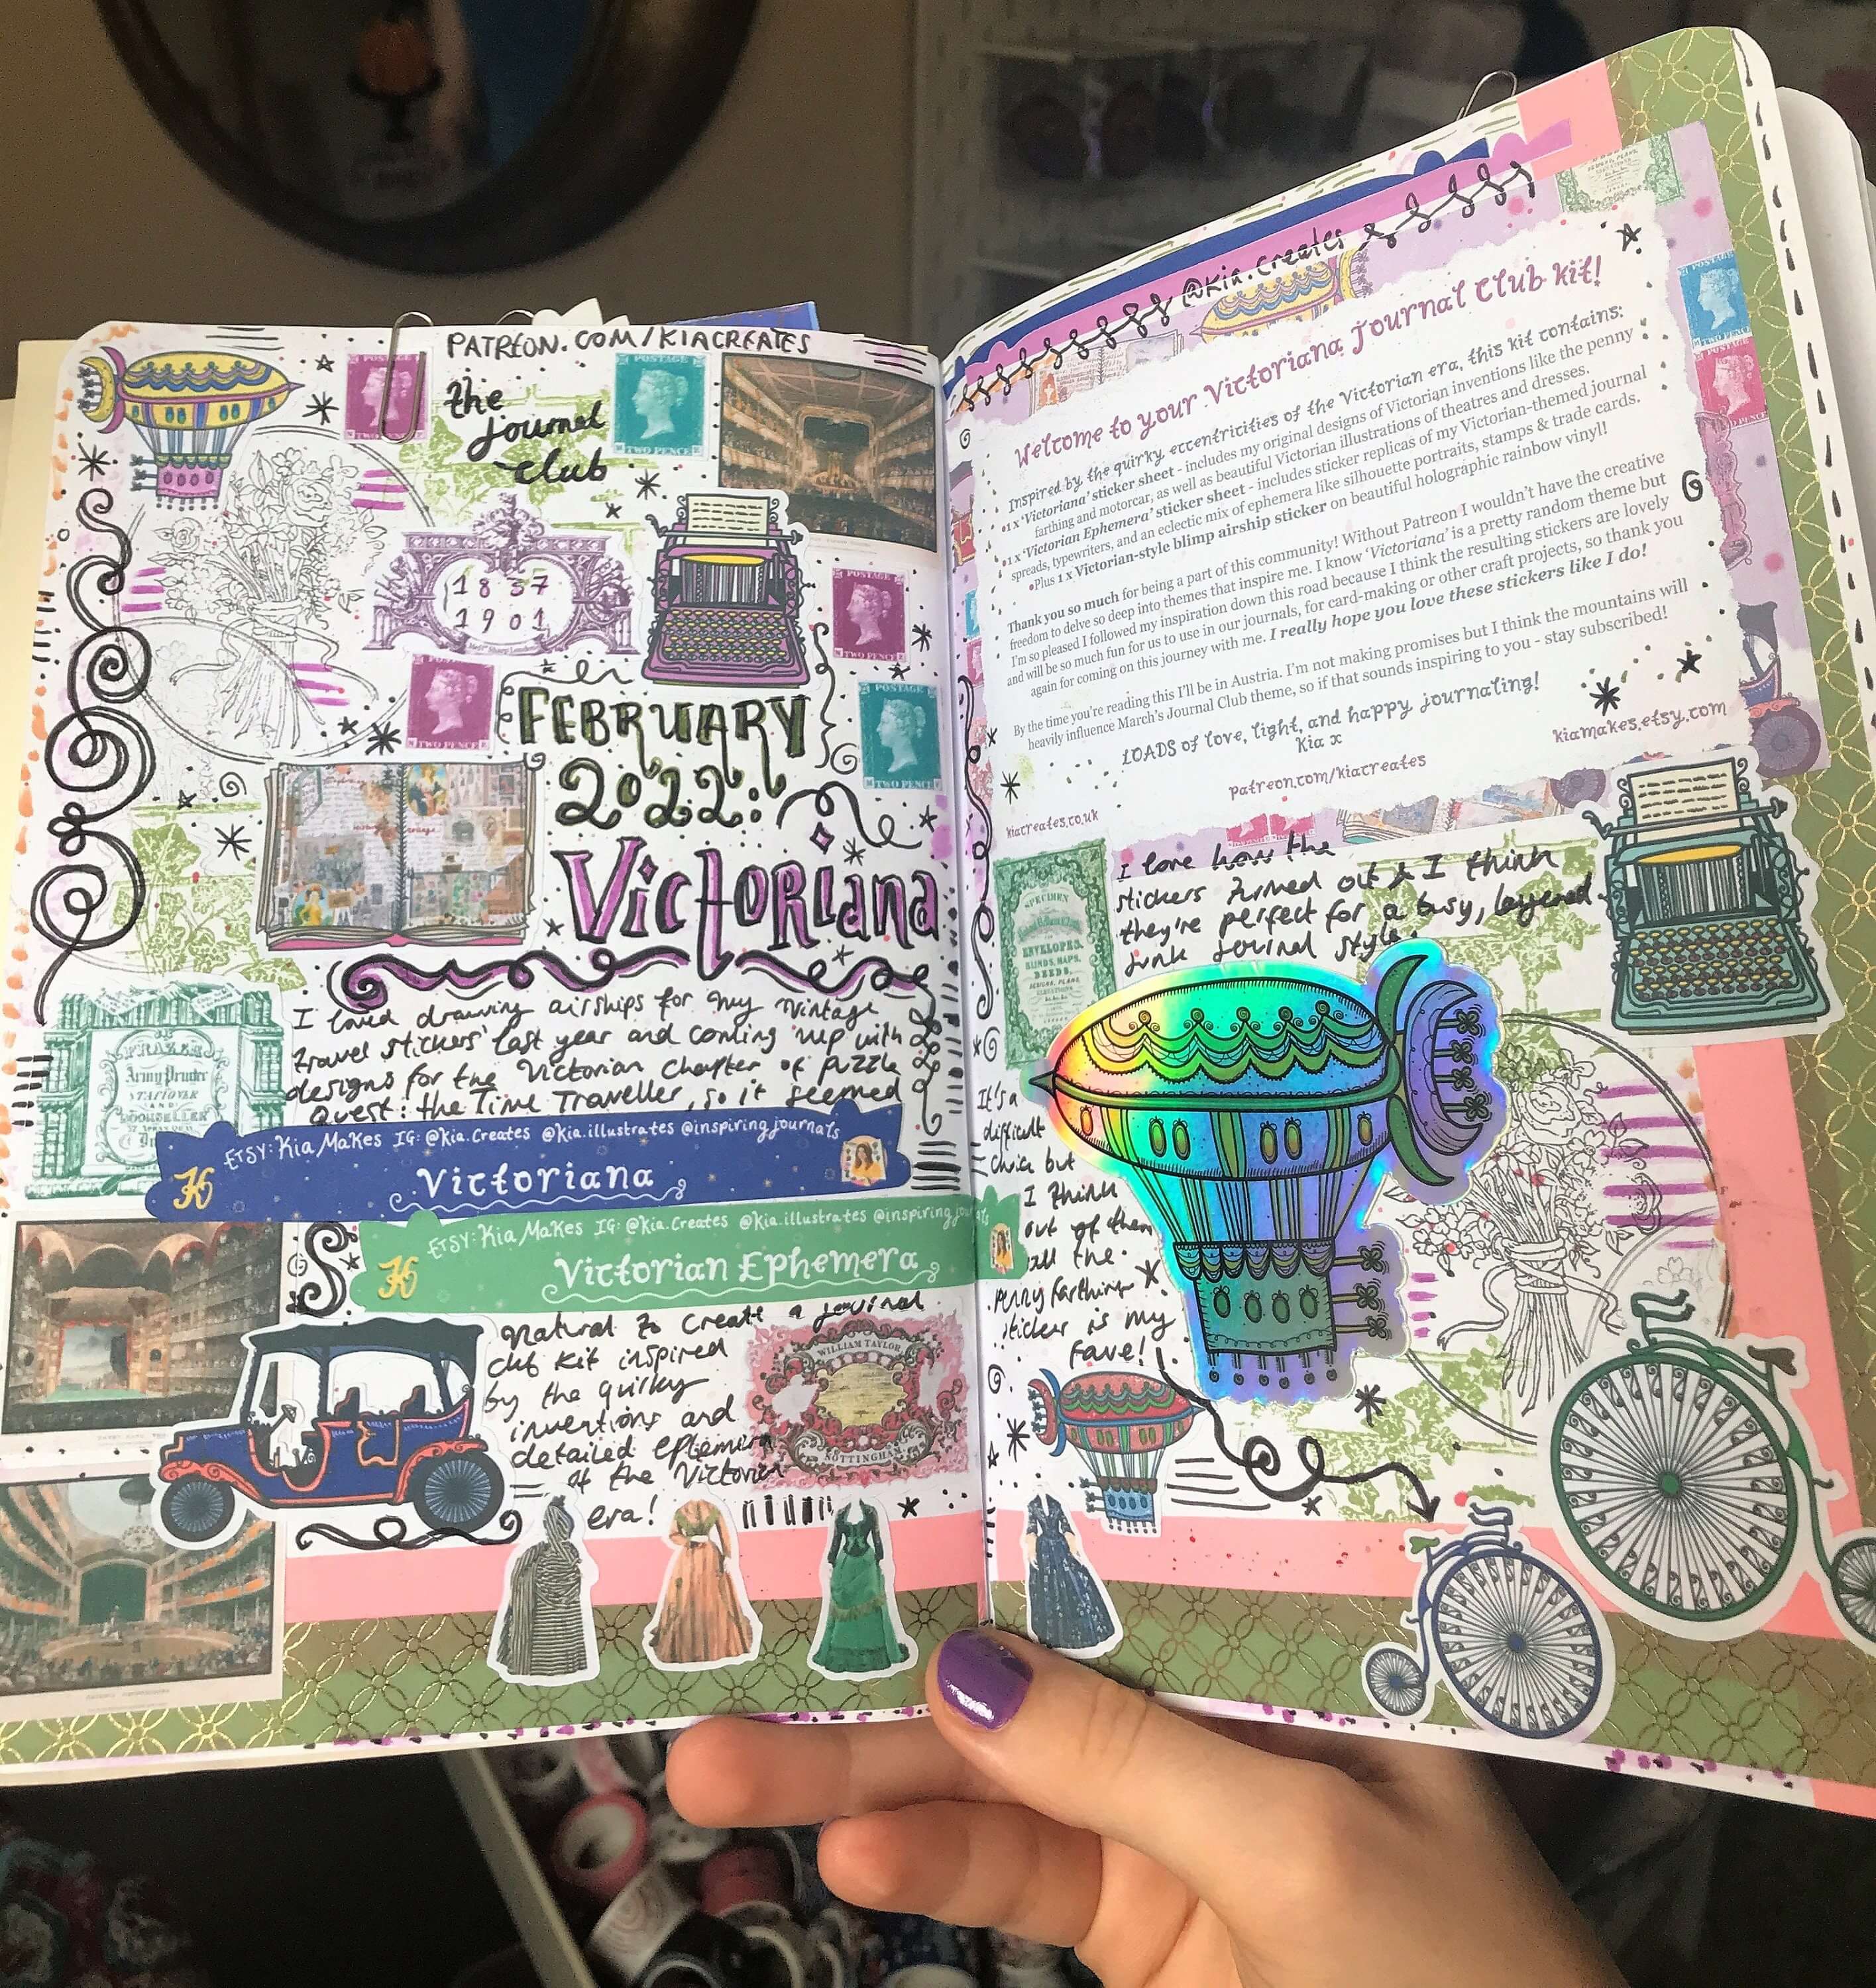 PATREON.COM/KIACREATES
the
journal
club
POSTAGE
TWO PENCE
POSTAGE
TWO PENCE
1837
1901
POSTAGE
TWO PENCE
POSTAGE
TWO PENCE
POSTAGE
TWO PENCE
FEBRUARY
2022:
Victoriana
I loved drawing airships for my vintage
travel stickers last year and coming up with
designs for the Victorian chapter of Puzzle
Quest: the Time Traveller, so it seemed
FRAZER
Army Printer
STATIONER
AND
BOOKSELLER
ETSY: Kia Makes IG: @kia.creates @kia.illustrates @inspiringjournals
Victoriana
ETSY: Kia Makes IG: @kia.creates @kia.illustrates @inspiringjournals
Victorian Ephemera
natural to create a journal
club kit inspired
by the quirky
inventions and
detailed ephemera
of the Victorian
era!
WILLIAM TAYLOR
NOTTINGHAM
@kia.creates
Welcome to your Victoriana Journal Club kit!
Inspired by the quirky eccentricities of the Victorian era, this kit contains:
•1 x 'Victoriana' sticker sheet - includes my original designs of Victorian inventions like the penny
farthing and motorcar, as well as beautiful Victorian illustrations of theatres and dresses.
•1 x 'Victorian Ephemera' sticker sheet - includes sticker replicas of my Victorian-themed journal
spreads, typewriters, and an eclectic mix of ephemera like silhouette portraits, stamps & trade cards.
•Plus 1 x Victorian-style blimp airship sticker on beautiful holographic rainbow vinyl!
Thank you so much for being a part of this community! Without Patreon I wouldn't have the creative
freedom to delve so deep into themes that inspire me. I know 'Victoriana' is a pretty random theme but
I'm so pleased I followed my inspiration down this road because I think the resulting stickers are lovely
and will be so much fun for us to use in our journals, for card-making or other craft projects, so thank you
again for coming on this journey with me. I really hope you love these stickers like I do!
By the time you're reading this I'll be in Austria. I'm not making promises but I think the mountains will
heavily influence March's Journal Club theme, so if that sounds inspiring to you - stay subscribed!
LOADS of love, light, and happy journaling!
Kia x
kiacreates.co.uk
patreon.com/kiacreates
kiamakes.etsy.com
TWO PENCE
POSTAGE
TWO PENCE
I love how the
stickers turned out & I think
they're perfect for a busy, layered
junk journal style.
SPECIMEN
ENVELOPES,
BLINDS, MAPS,
DEEDS,
DESIGNS, PLANS,
It's a
difficult
choice but
I think
out of them
all the
penny farthing
sticker is my
fave!